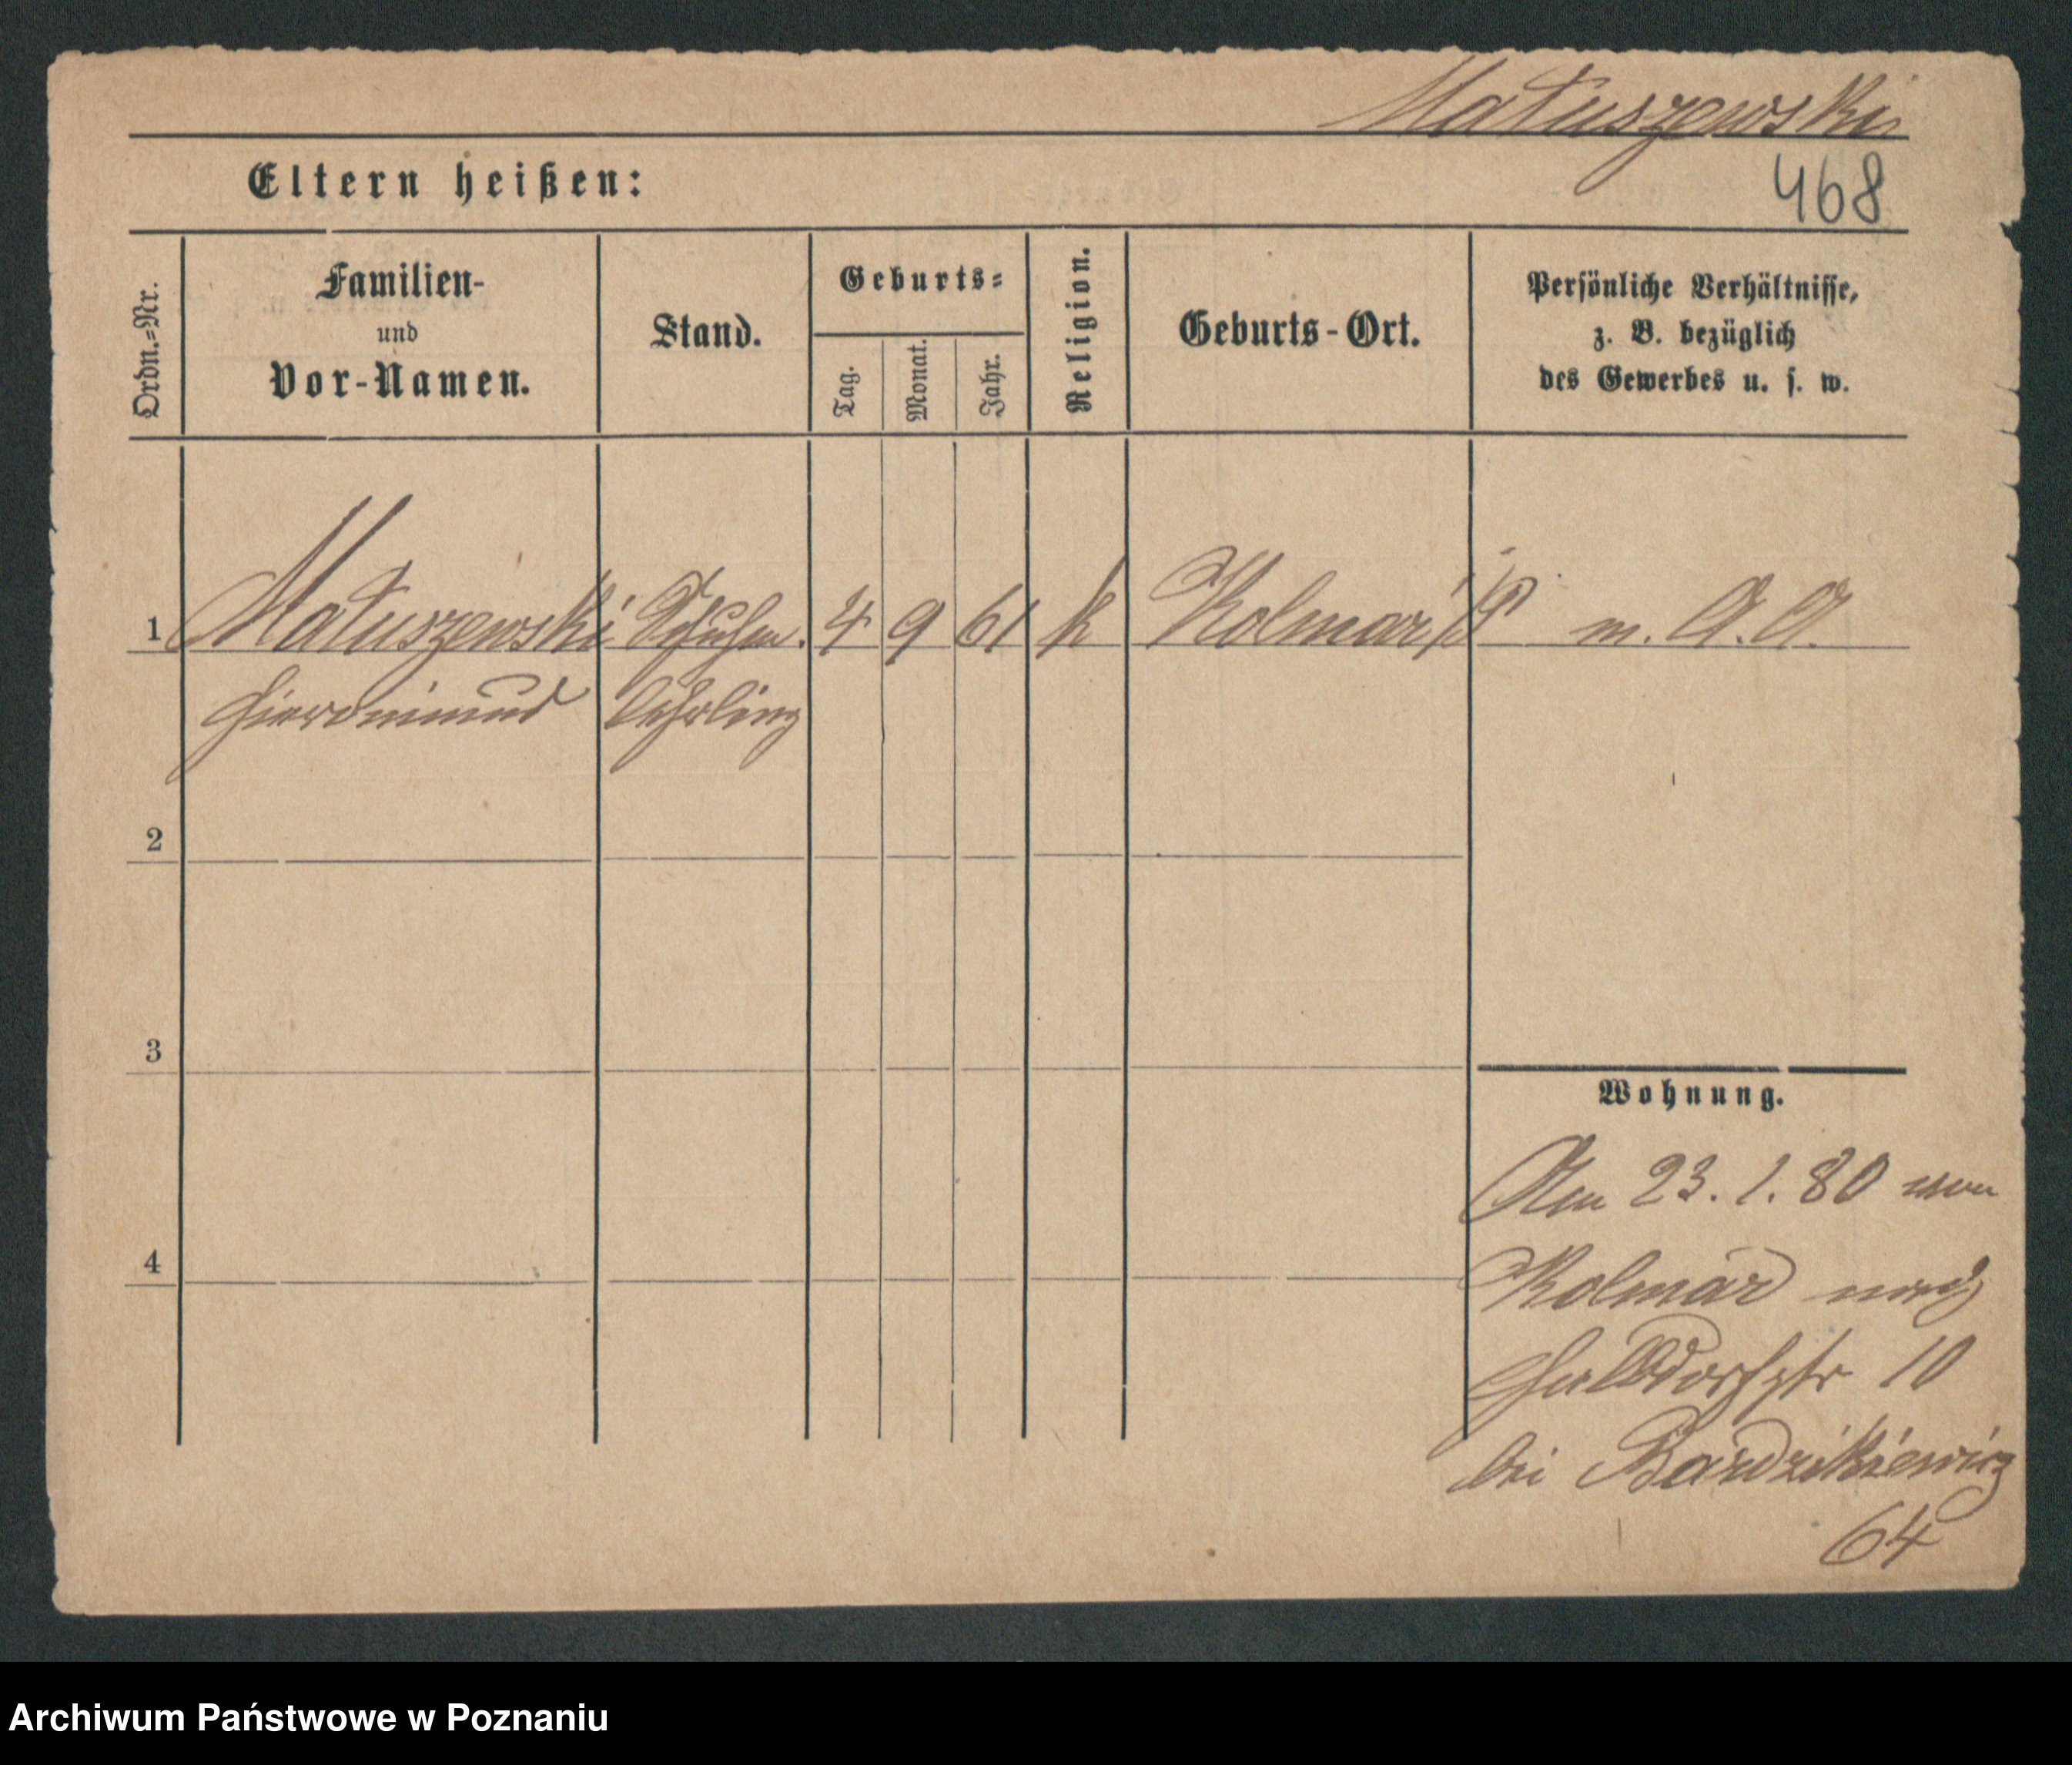 Matuszewski
Eltern heißen:
468
Ordn.=Nr.
Familien-
und
Vor-Namen.
Stand.
Geburts=
Tag.
Monat.
Jahr.
Religion.
Geburts-Ort.
Persönliche Verhältnisse,
z. B. bezüglich
des Gewerbes u. s. w.
1 Matuszewski Schuhm. 4 9 61 k Kolmar i/P m. A. A.
Hieronimus Lehrling
2
3
4
Wohnung.
Am 23. 1. 80 von
Kolmar nach
Halbdorfstr 10
bei Bardzikiewicz
64
Archiwum Państwowe w Poznaniu